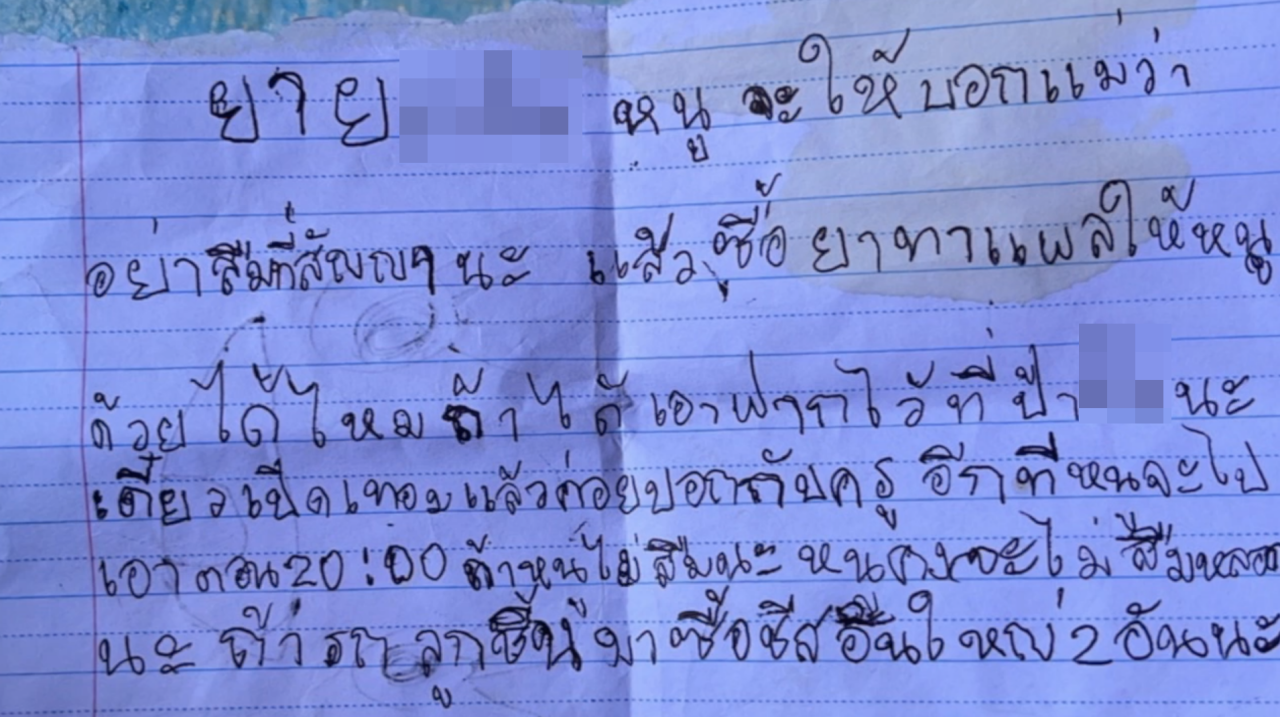 ยาย หนู จะให้บอกแม่ว่า
อย่าลืมที่สัญญานะ แล้วซื้อยาทาแผลให้หนู
ด้วยได้ไหม ถ้าได้เอาฝากไว้ที่ป้า นะ
เดี๋ยวเปิดเทอมแล้วค่อยบอกกับครู อีกทีหนูจะไป
เอาตอน 20:00 ถ้าหนูไม่ลืมนะ หนูคงจะไม่ลืมหลอก
นะ ถ้ารถลูกชิ้น มาซื้อชีสอันใหญ่ 2 อันนะ